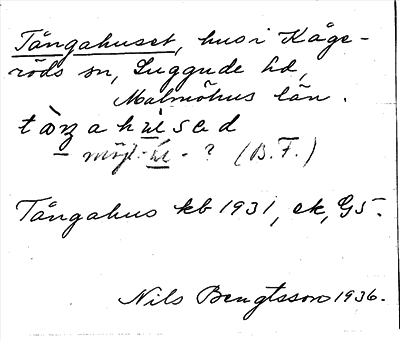 Tångahuset, hus i Kåge-
röds sn, Luggude hd,
Malmöhus län.
– möjl. – ? (B.F.)
Tångahus kb 1931, ek, G5.
Nils Bengtsson 1936.